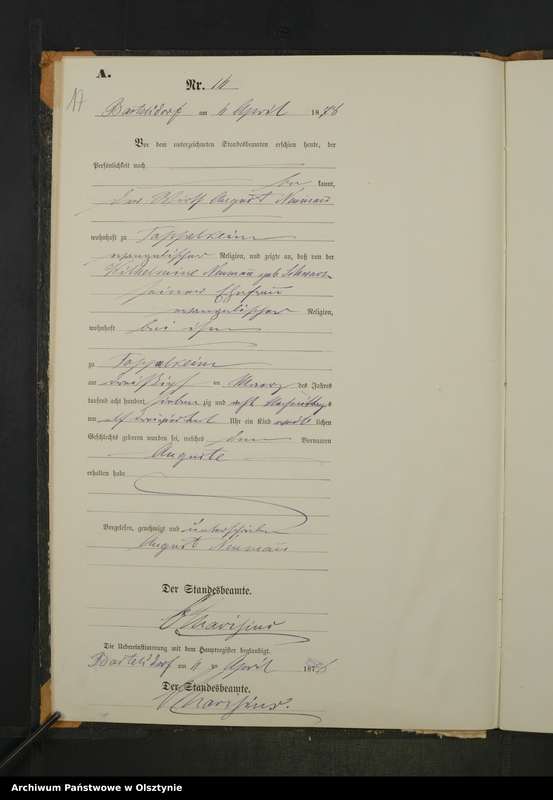 A.
Nr. 14
17
Bartelsdorf am 4 April 1878
Vor dem unterzeichneten Standesbeamten erschien heute, der
Persönlichkeit nach
be kannt,
der Wirth August Neumann
wohnhaft zu Toppelkeim
evangelischer Religion, und zeigte an, daß von der
Wilhelmine Neumann geb Schwarz
seiner Ehefrau
evangelischer Religion,
wohnhaft bei ihm
zu Toppelkeim
am dreißigst en Maerz des Jahres
tausend acht hundert sieben zig und acht Nachmittags
um elf dreiviertel Uhr ein Kind weib lichen
Geschlechts geboren worden sei, welches den Vornamen
Auguste
erhalten habe.
Vorgelesen, genehmigt und unterschrieben
August Neumann
Der Standesbeamte.
Die Uebereinstimmung mit dem Hauptregister beglaubigt.
Bartelsdorf am 4 April 1878
Der Standesbeamte.
Archiwum Państwowe w Olsztynie